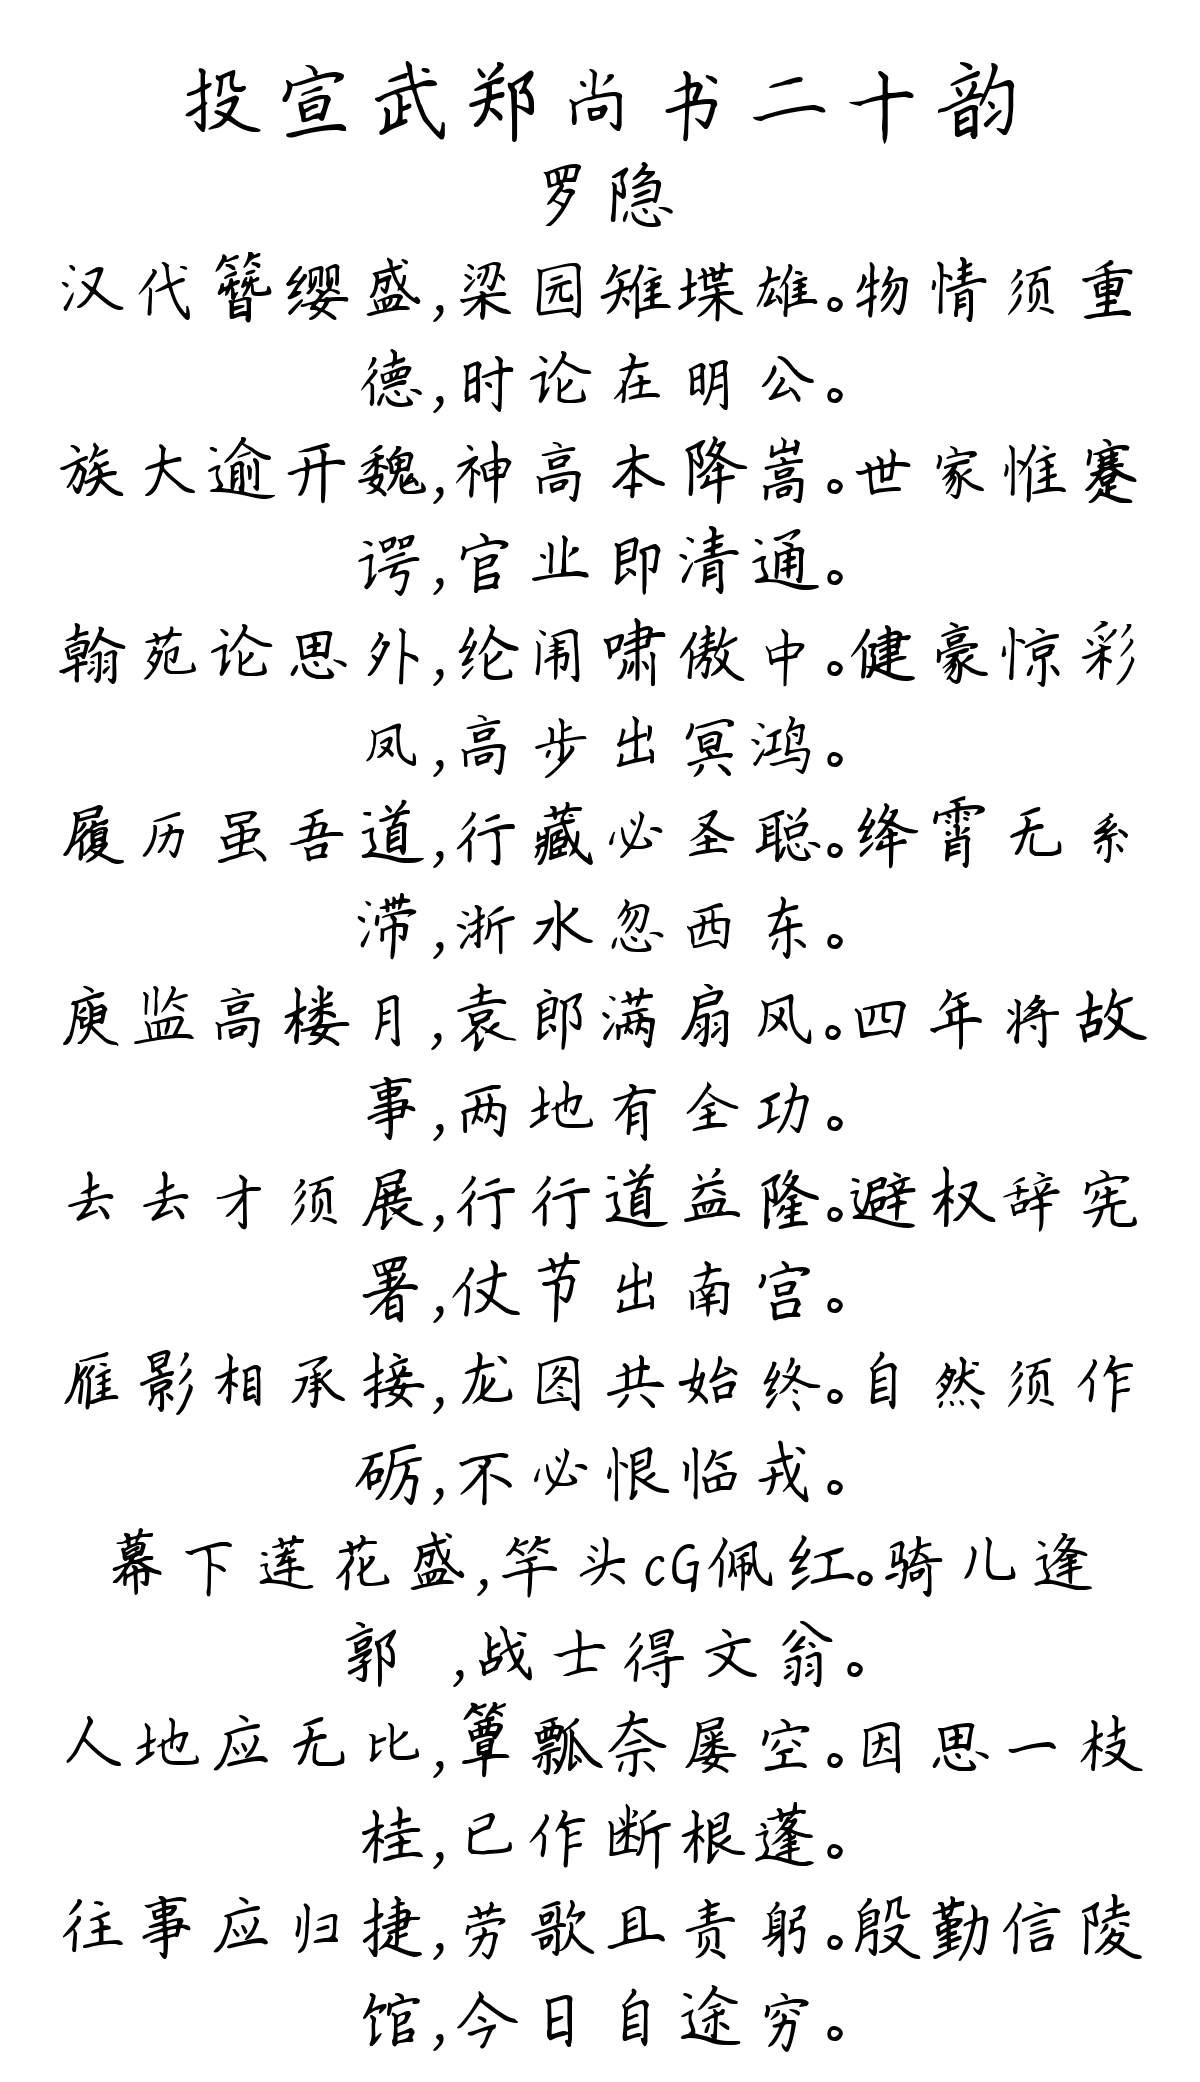 投宣武郑尚书二十韵
罗隐
汉代簪缨盛,梁园雉堞雄。物情须重
德,时论在明公。
族大逾开魏,神高本降嵩。世家惟蹇
谔,官业即清通。
翰苑论思外,纶闱啸傲中。健豪惊彩
凤,高步出冥鸿。
履历虽吾道,行藏必圣聪。绛霄无系
滞,浙水忽西东。
庾监高楼月,袁郎满扇风。四年将故
事,两地有全功。
去去才须展,行行道益隆。避权辞宪
署,仗节出南宫。
雁影相承接,龙图共始终。自然须作
砺,不必恨临戎。
幕下莲花盛,竿头cG佩红。骑儿逢
郭 ,战士得文翁。
人地应无比,簟瓢奈屡空。因思一枝
桂,已作断根蓬。
往事应归捷,劳歌且责躬。殷勤信陵
馆,今日自途穷。